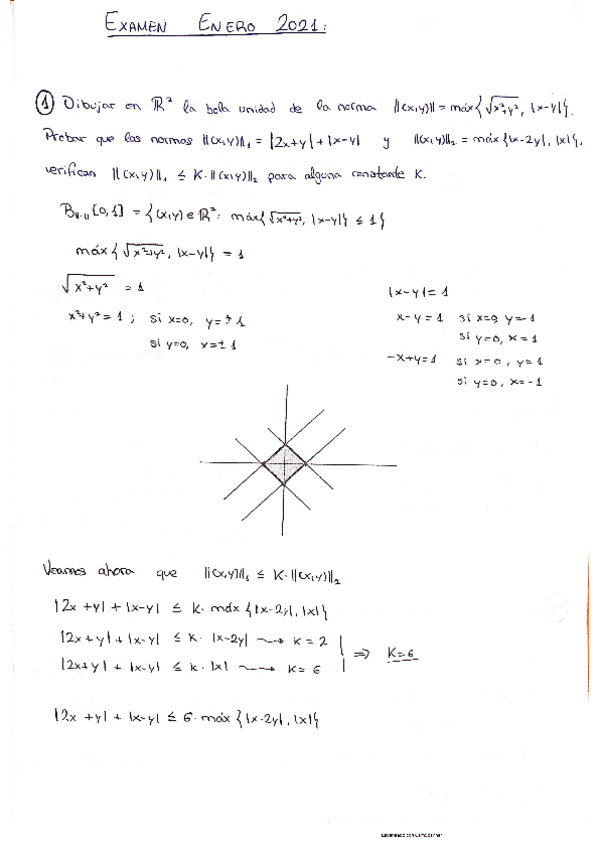 EXAMEN ENERO 2021:
① Dibujar en ℝ² la bola unidad de la norma ||(x,y)|| = máx{√x²+y², |x-y|}.
Probar que las normas ||(x,y)||₁ = |2x+y| + |x-y| y ||(x,y)||₂ = máx{|x-2y|, |x|},
verifican ||(x,y)||₁ ≤ K·||(x,y)||₂ para alguna constante K.
B||·||[0,1] = {(x,y) ∈ ℝ²: máx{√x²+y², |x-y|} ≤ 1}
máx{√x²+y², |x-y|} = 1
√x²+y² = 1
x²+y² = 1 ; si x=0, y=±1
si y=0, x=±1
|x-y| = 1
x-y = 1 si x=0 y=-1
si y=0, x=1
-x+y=1 si x=0, y=1
si y=0, x=-1
Veamos ahora que ||(x,y)||₁ ≤ K·||(x,y)||₂
|2x+y| + |x-y| ≤ k· máx{|x-2y|, |x|}
|2x+y| + |x-y| ≤ k· |x-2y| ⇝ k=2
|2x+y| + |x-y| ≤ k·|x| ⇝ k=6
⇒ K=6
|2x+y| + |x-y| ≤ 6·máx{|x-2y|, |x|}
Escaneado con CamScanner